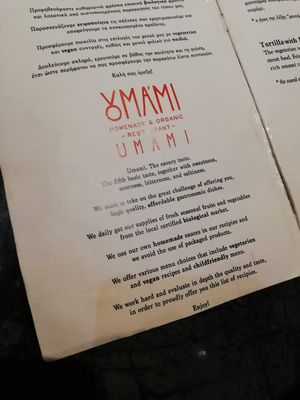 Προμηθευόμαστε καθημερινά φρέσκα εποχιακά βιολογικά φρούτα
και λαχανικά από πιστοποιημένους παραγωγούς του τόπου μας.
Παρασκευάζουμε χειροποίητα τις σάλτσες που χρησιμοποιούμε και
αποφεύγουμε τα συσκευασμένα προϊόντα.
Προσφέρουμε ποικιλία στις επιλογές του μενού μας με vegetarian
και vegan συνταγές, καθώς και μενού φιλικό για παιδιά.
Δουλεύουμε σκληρά, ερευνούμε σε βάθος την ποιότητα και τη γεύση,
έτσι ώστε περήφανα να σας προσφέρουμε την παρακάτω λίστα συνταγών.
Καλή σας όρεξη!
OMAMI
HOMEMADE & ORGANIC
- RESTAURANT -
UMAMI
Umami. The savory taste.
The fifth basic taste, together with sweetness,
sourness, bitterness, and saltiness.
We want to take on the great challenge of offering you,
high quality, affordable gastronomic dishes.
We daily get our supplies of fresh seasonal fruits and vegetables
from the local certified biological market.
We use our own homemade sauces in our recipies and
we avoid the use of packaged products.
We offer various menu choices that include vegetarian
and vegan recipes and childfriendly menu.
We work hard and evaluate in depth the quality and taste,
in order to proudly offer you this list of recipies.
Enjoy!
Tortilla with
The vegetarian
street food.
rich umami